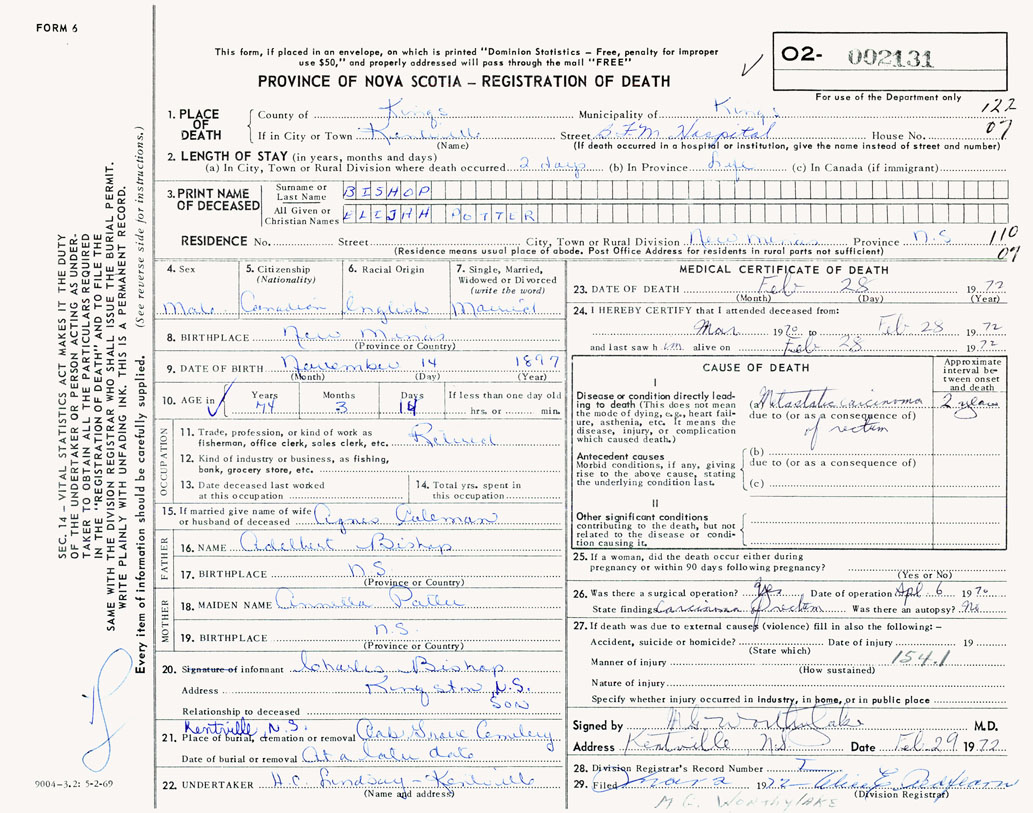 FORM 6
This form, if placed in an envelope, on which is printed "Dominion Statistics – Free, penalty for improper
use $50," and properly addressed will pass through the mail "FREE"
PROVINCE OF NOVA SCOTIA – REGISTRATION OF DEATH
O2- 002131
For use of the Department only
122
07
1. PLACE OF DEATH
County of Kings Municipality of Kings
If in City or Town Kentville Street B.F.M. Hospital House No.
(Name) (If death occurred in a hospital or institution, give the name instead of street and number)
2. LENGTH OF STAY (in years, months and days)
(a) In City, Town or Rural Division where death occurred 2 days (b) In Province Life (c) In Canada (if immigrant)
3. PRINT NAME OF DECEASED
Surname or Last Name BISHOP
All Given or Christian Names ELIJHH POTTER
RESIDENCE No. Street City, Town or Rural Division New Minas Province N.S
(Residence means usual place of abode. Post Office Address for residents in rural parts not sufficient)
110
07
4. Sex Male
5. Citizenship (Nationality) Canadian
6. Racial Origin English
7. Single, Married, Widowed or Divorced (write the word) Married
8. BIRTHPLACE New Minas
(Province or Country)
9. DATE OF BIRTH November 14 1897
(Month) (Day) (Year)
10. AGE in Years 74 Months 3 Days 14 If less than one day old hrs. or min.
OCCUPATION
11. Trade, profession, or kind of work as
fisherman, office clerk, sales clerk, etc. Retired
12. Kind of industry or business, as fishing,
bank, grocery store, etc.
13. Date deceased last worked at this occupation
14. Total yrs. spent in this occupation
15. If married give name of wife or husband of deceased Agnes Coleman
FATHER
16. NAME Adelbert Bishop
17. BIRTHPLACE N.S.
(Province or Country)
MOTHER
18. MAIDEN NAME
19. BIRTHPLACE N.S.
(Province or Country)
20. Signature of informant Charles Bishop
Address Kingston, N.S.
Relationship to deceased Son
Kentville, N.S.
21. Place of burial, cremation or removal Oak Grove Cemetery
Date of burial or removal At a later date
22. UNDERTAKER H.C. Lindsay – Kentville
(Name and address)
MEDICAL CERTIFICATE OF DEATH
23. DATE OF DEATH Feb 28 1972
(Month) (Day) (Year)
24. I HEREBY CERTIFY that I attended deceased from:
Mar 1970 to Feb 28 1972
and last saw him alive on Feb 28 1972
CAUSE OF DEATH
Approximate interval between onset and death
I
Disease or condition directly leading to death (This does not mean the mode of dying, e.g., heart failure, asthenia, etc. It means the disease, injury, or complication which caused death.)
(a) Metastatic carcinoma 2 years
due to (or as a consequence of)
of rectum
Antecedent causes
Morbid conditions, if any, giving rise to the above cause, stating the underlying condition last.
(b)
due to (or as a consequence of)
(c)
II
Other significant conditions
contributing to the death, but not related to the disease or condition causing it.
25. If a woman, did the death occur either during
pregnancy or within 90 days following pregnancy?
(Yes or No)
26. Was there a surgical operation? Yes Date of operation Apl. 6 1970
State finding Carcinoma of rectum Was there an autopsy? No
27. If death was due to external causes (violence) fill in also the following: –
Accident, suicide or homicide? Date of injury 19
(State which)
Manner of injury 154.1
(How sustained)
Nature of injury
Specify whether injury occurred in industry, in home, or in public place
Signed by M.D.
Address Kentville NS Date Feb. 29 1972
28. Division Registrar's Record Number
29. Filed 1972
(Division Registrar)
M G WORTHYLAKE
SEC. 14 – VITAL STATISTICS ACT MAKES IT THE DUTY
OF THE UNDERTAKER OR PERSON ACTING AS UNDER-
TAKER TO OBTAIN ALL THE PARTICULARS REQUIRED
IN THE "REGISTRATION OF DEATH" AND TO FILE THE
SAME WITH THE DIVISION REGISTRAR WHO SHALL ISSUE THE BURIAL PERMIT.
WRITE PLAINLY WITH UNFADING INK. THIS IS A PERMANENT RECORD.
Every item of information should be carefully supplied. (See reverse side for instructions.)
9004-3.2: 5-2-69